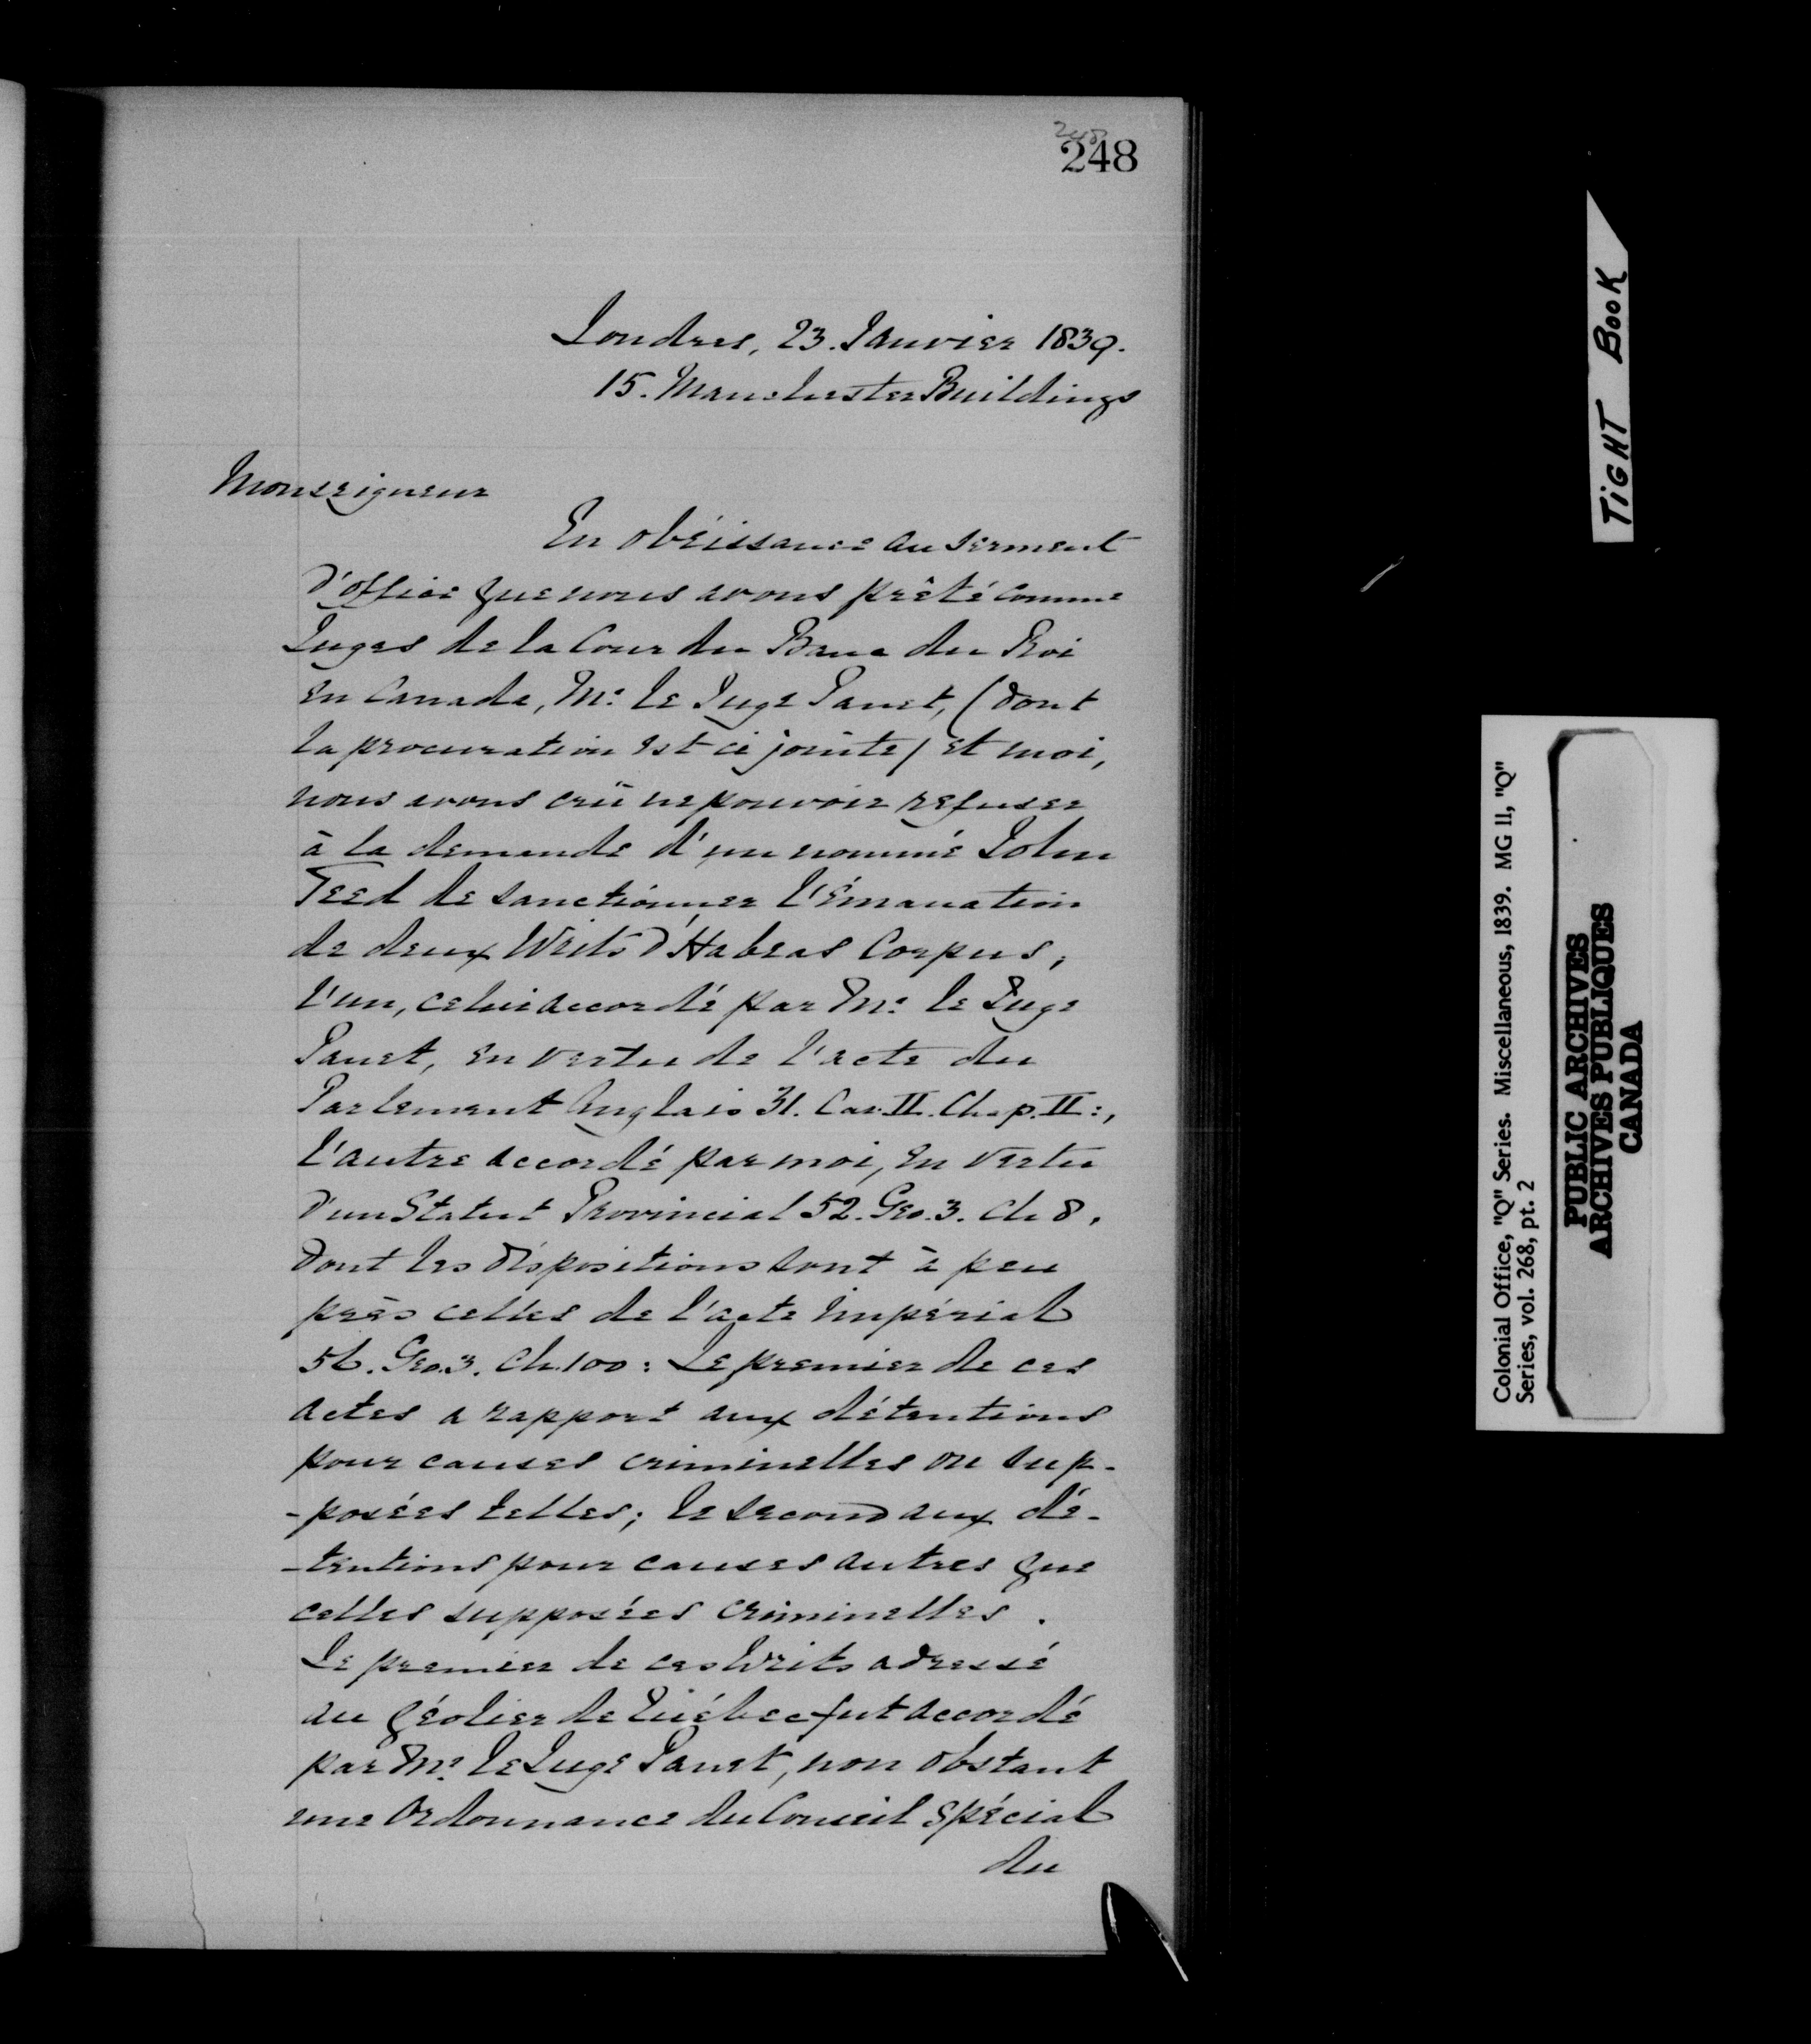 248
248
Londres, 23. Janvier 1839.
15. Manchester Buildings
Monseigneur
En obéissance au serment
d'office que nous avons prêté comme
Juges de la Cour du Banc du Roi
en Canada, Mr. le Juge Panet, (dont
la procuration est ci jointe) et moi,
nous avons crû ne pouvoir refuser
à la demande d'un nommé John
Teed de sanctionner l'émanation
de deux Writs d'Habeas Corpus;
l'un, celui accordé par Mr. le Juge
Panet, en vertu de l'acte du
Parlement Anglais 31. Car. II. Chap. II:,
l'autre accordé par moi, en vertu
d'un Statut Provincial 52. Geo. 3. Ch 8,
dont les dispositions sont à peu
près celles de l'acte Impérial
56. Geo. 3. Ch. 100: Le premier de ces
actes a rapport aux détentions
pour causes criminelles ou sup-
-posées telles; le second aux dé-
-tentions pour causes autres que
celles supposées criminelles.
Le premier de ces Writs adressé
au géolier de Québec fut accordé
par Mr. le Juge Panet, non obstant
une Ordonnance du Conseil Spécial
du
TIGHT BOOK
Colonial Office, "Q" Series. Miscellaneous, 1839. MG II, "Q"
Series, vol. 268, pt. 2
PUBLIC ARCHIVES
ARCHIVES PUBLIQUES
CANADA